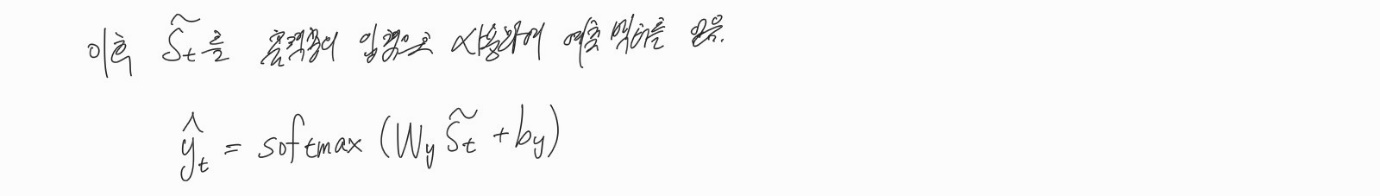 이후 s̃_t를 출력층의 입력으로 사용하여 예측 벡터를 얻음.
ŷ_t = softmax (W_y s̃_t + b_y)